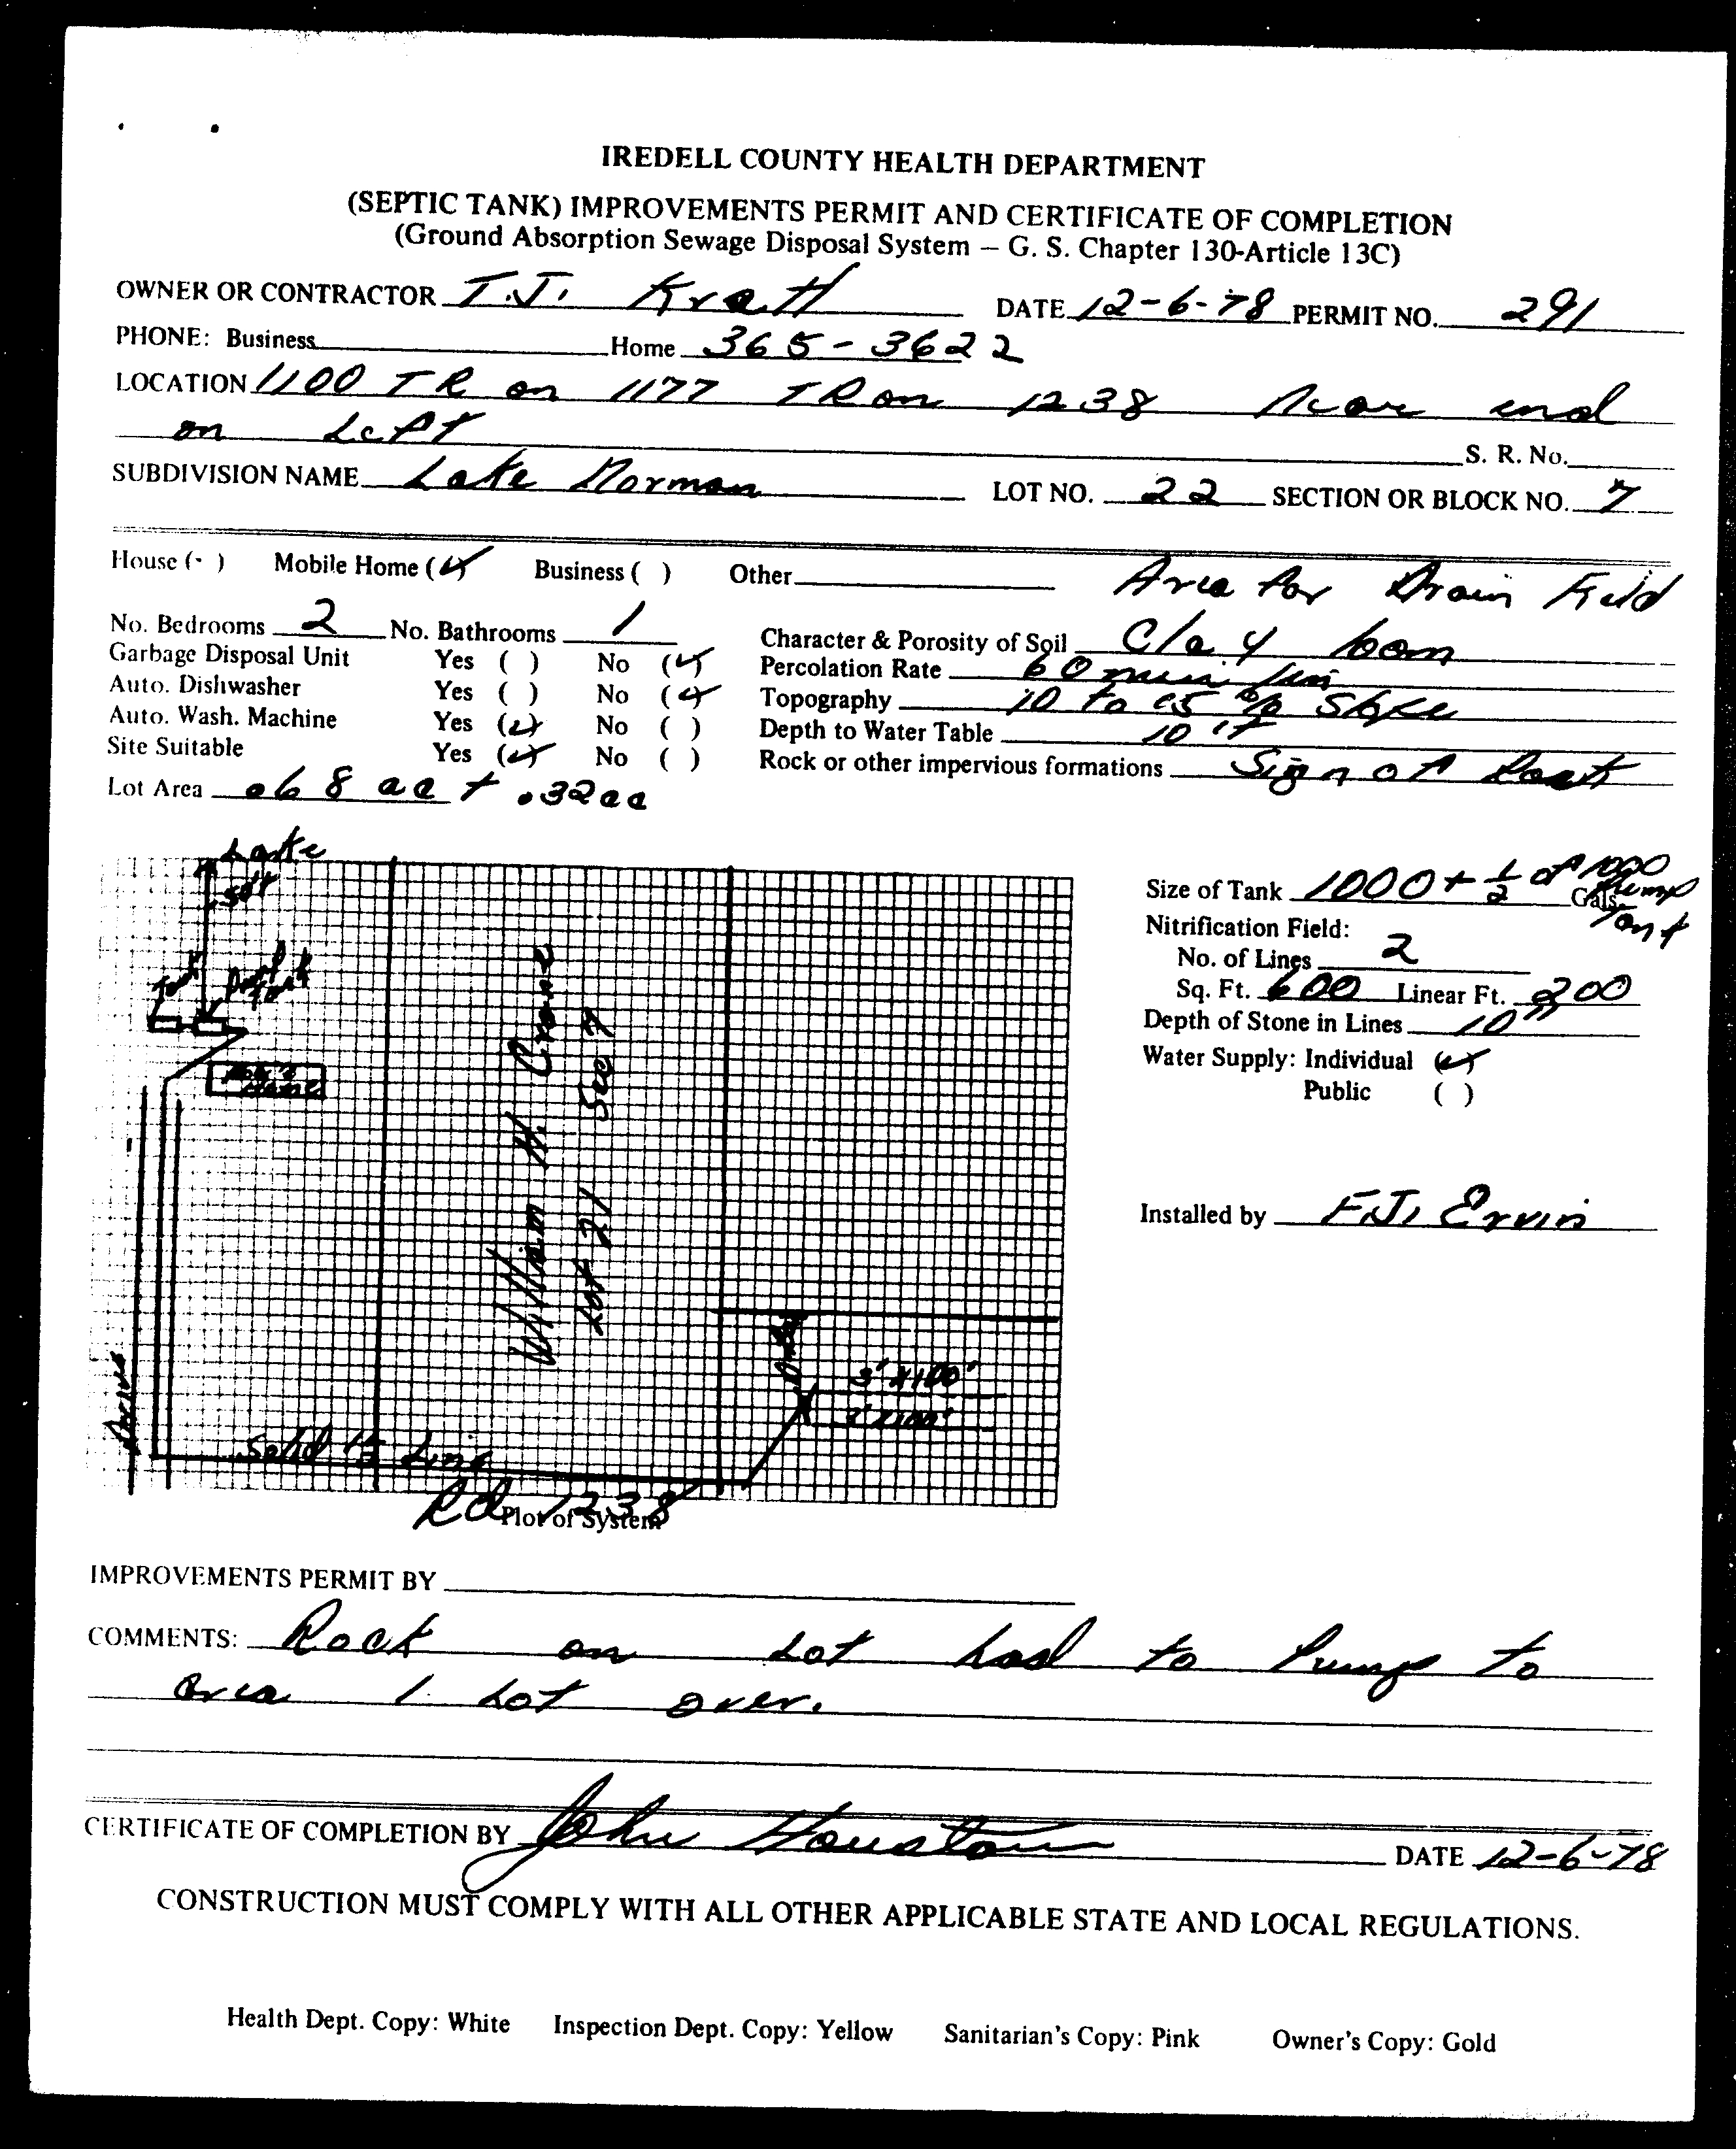 IREDELL COUNTY HEALTH DEPARTMENT
(SEPTIC TANK) IMPROVEMENTS PERMIT AND CERTIFICATE OF COMPLETION
(Ground Absorption Sewage Disposal System – G. S. Chapter 130-Article 13C)
OWNER OR CONTRACTOR T.J. DATE 12-6-78 PERMIT NO. 291
PHONE: Business Home 365-3622
LOCATION 1100 TR on 1177 TR on 1238 Near end
on Left S. R. No.
SUBDIVISION NAME Lake Norman LOT NO. 22 SECTION OR BLOCK NO. 7
House ( ) Mobile Home (✓) Business ( ) Other Area for Drain Field
No. Bedrooms 2 No. Bathrooms 1 Character & Porosity of Soil Clay loam
Garbage Disposal Unit Yes ( ) No (✓) Percolation Rate 60 min/in
Auto. Dishwasher Yes ( ) No (✓) Topography 10 to 15 % Slope
Auto. Wash. Machine Yes (✓) No ( ) Depth to Water Table 10 ft
Site Suitable Yes (✓) No ( ) Rock or other impervious formations Sign of Rock
Lot Area .68 ac + .32ac
Lake
50ft
Tank
Tank
Home
William H. Crane
Lot 21 Sec 7
Drive
3' x 100'
3' x 100'
Solid Line
Rd 1238
Plot of System
Size of Tank 1000 + 1/2 of 1000 Gals. Pump Tank
Nitrification Field:
No. of Lines 2
Sq. Ft. 600 Linear Ft. 200
Depth of Stone in Lines 10"
Water Supply: Individual (✓)
Public ( )
Installed by F.J. Ervin
IMPROVEMENTS PERMIT BY
COMMENTS: Rock on Lot had to Pump to
area 1 Lot over.
CERTIFICATE OF COMPLETION BY John Houston DATE 12-6-78
CONSTRUCTION MUST COMPLY WITH ALL OTHER APPLICABLE STATE AND LOCAL REGULATIONS.
Health Dept. Copy: White Inspection Dept. Copy: Yellow Sanitarian's Copy: Pink Owner's Copy: Gold